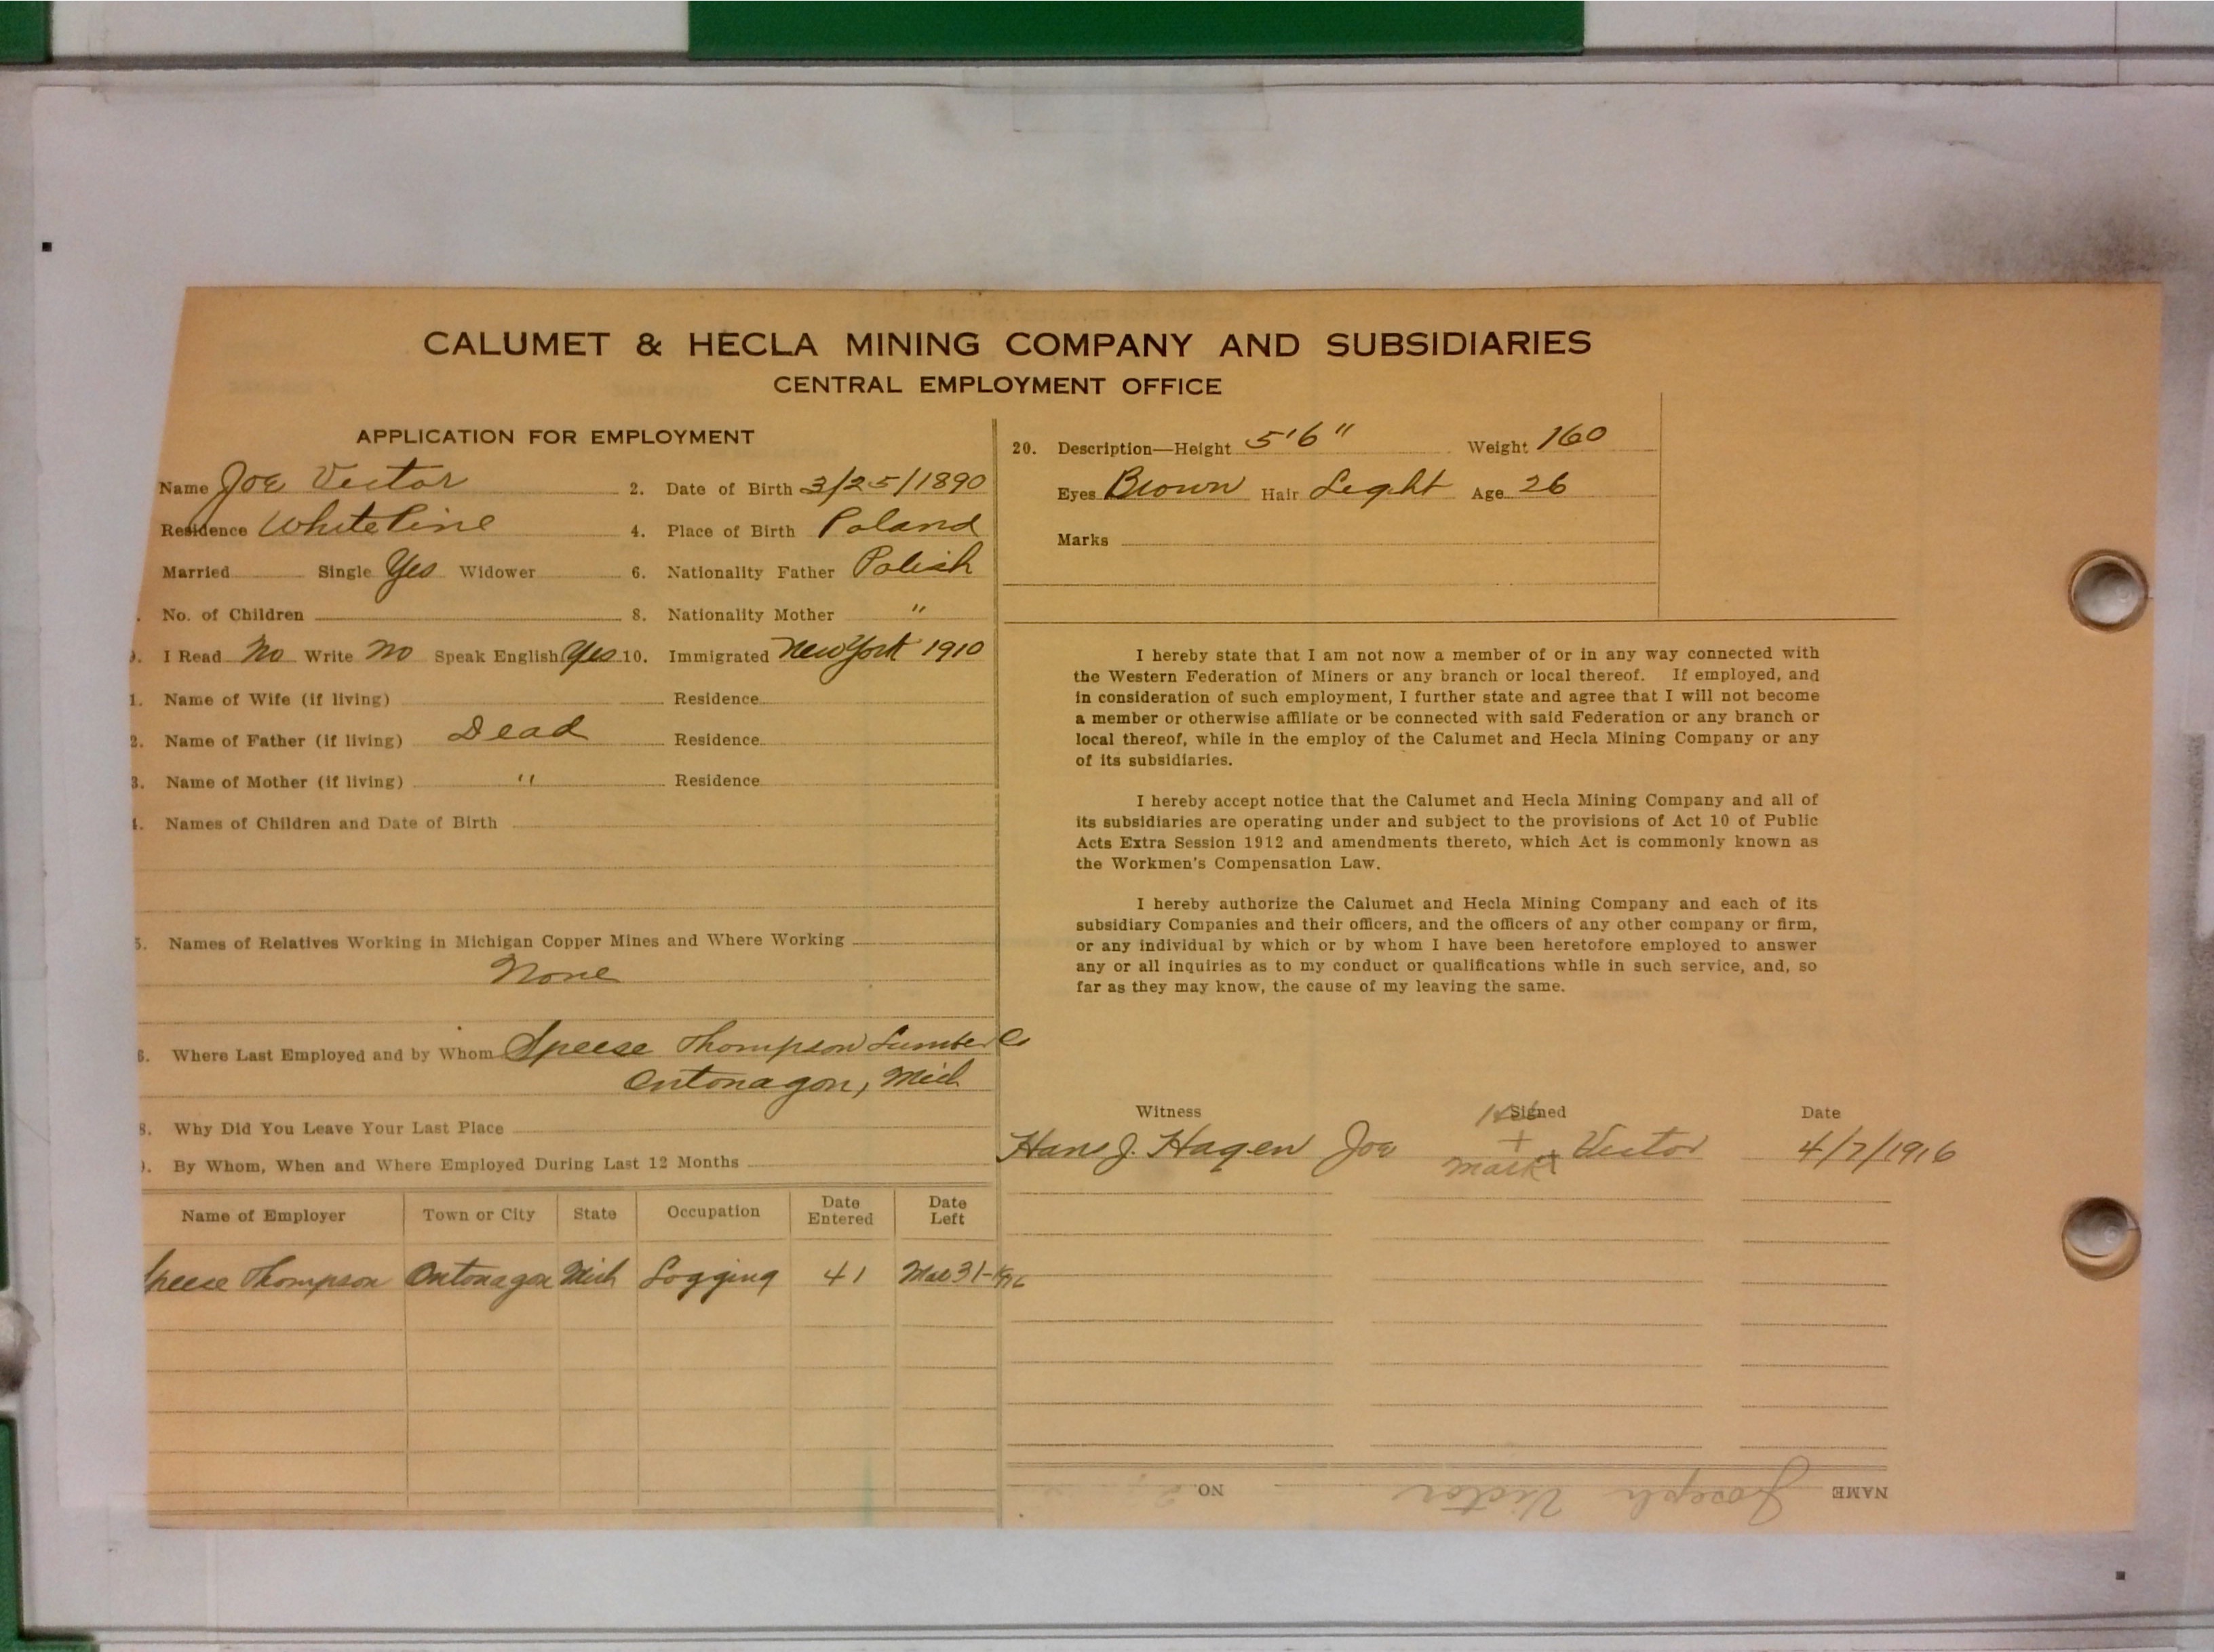 CALUMET & HECLA MINING COMPANY AND SUBSIDIARIES
CENTRAL EMPLOYMENT OFFICE
APPLICATION FOR EMPLOYMENT
Name Joe Victor 2. Date of Birth 3/25/1890
Residence White Pine 4. Place of Birth Poland
Married Single Yes Widower 6. Nationality Father Polish
No. of Children 8. Nationality Mother "
I Read No Write No Speak English Yes 10. Immigrated New York 1910
1. Name of Wife (if living) Residence
2. Name of Father (if living) Dead Residence
3. Name of Mother (if living) " Residence
4. Names of Children and Date of Birth
5. Names of Relatives Working in Michigan Copper Mines and Where Working
None
6. Where Last Employed and by Whom Speese Thompson Lumber Co
Ontonagon, Mich
8. Why Did You Leave Your Last Place
9. By Whom, When and Where Employed During Last 12 Months
Name of Employer Town or City State Occupation Date Entered Date Left
Speese Thompson Ontonagon Mich Logging Mar 31-1916
20. Description—Height 5'6" Weight 160
Eyes Brown Hair Light Age 26
Marks
I hereby state that I am not now a member of or in any way connected with
the Western Federation of Miners or any branch or local thereof. If employed, and
in consideration of such employment, I further state and agree that I will not become
a member or otherwise affiliate or be connected with said Federation or any branch or
local thereof, while in the employ of the Calumet and Hecla Mining Company or any
of its subsidiaries.
I hereby accept notice that the Calumet and Hecla Mining Company and all of
its subsidiaries are operating under and subject to the provisions of Act 10 of Public
Acts Extra Session 1912 and amendments thereto, which Act is commonly known as
the Workmen's Compensation Law.
I hereby authorize the Calumet and Hecla Mining Company and each of its
subsidiary Companies and their officers, and the officers of any other company or firm,
or any individual by which or by whom I have been heretofore employed to answer
any or all inquiries as to my conduct or qualifications while in such service, and, so
far as they may know, the cause of my leaving the same.
Witness Signed Date
His
Hans J. Hagen Joe + Victor 4/7/1916
mark
NAME Joseph Victor NO.